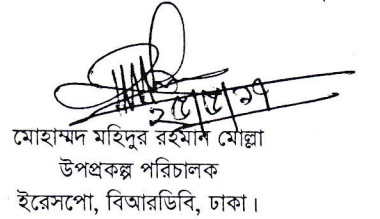 ২৫/৫/১৭
মোহাম্মদ মহিদুর রহমান মোল্লা
উপপ্রকল্প পরিচালক
ইরেসপো, বিআরডিবি, ঢাকা।